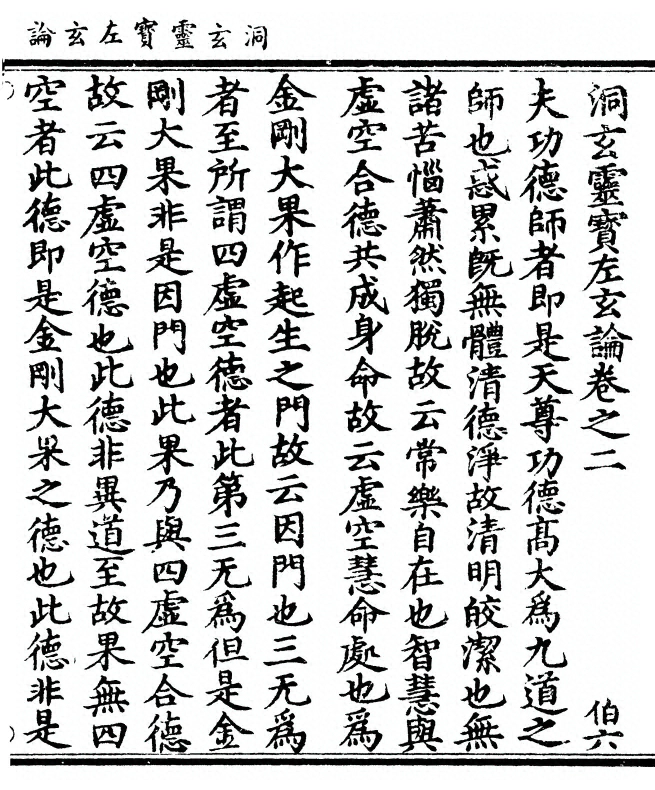 洞玄靈寶左玄論
洞玄靈寶左玄論卷之二
伯六
夫功德師者即是天尊功德髙大爲九道之
師也惑累旣無體清德淨故清明皎潔也無
諸苦惱蕭然獨脫故云常樂自在也智慧與
虛空合德共成身命故云虛空慧命處也爲
金剛大果作起生之門故云因門也三无爲
者至所謂四虛空德者此第三无爲但是金
剛大果非是因門也此果乃與四虛空合德
故云四虛空德也此德非異道至故果無四
空者此德即是金剛大果之德也此德非是